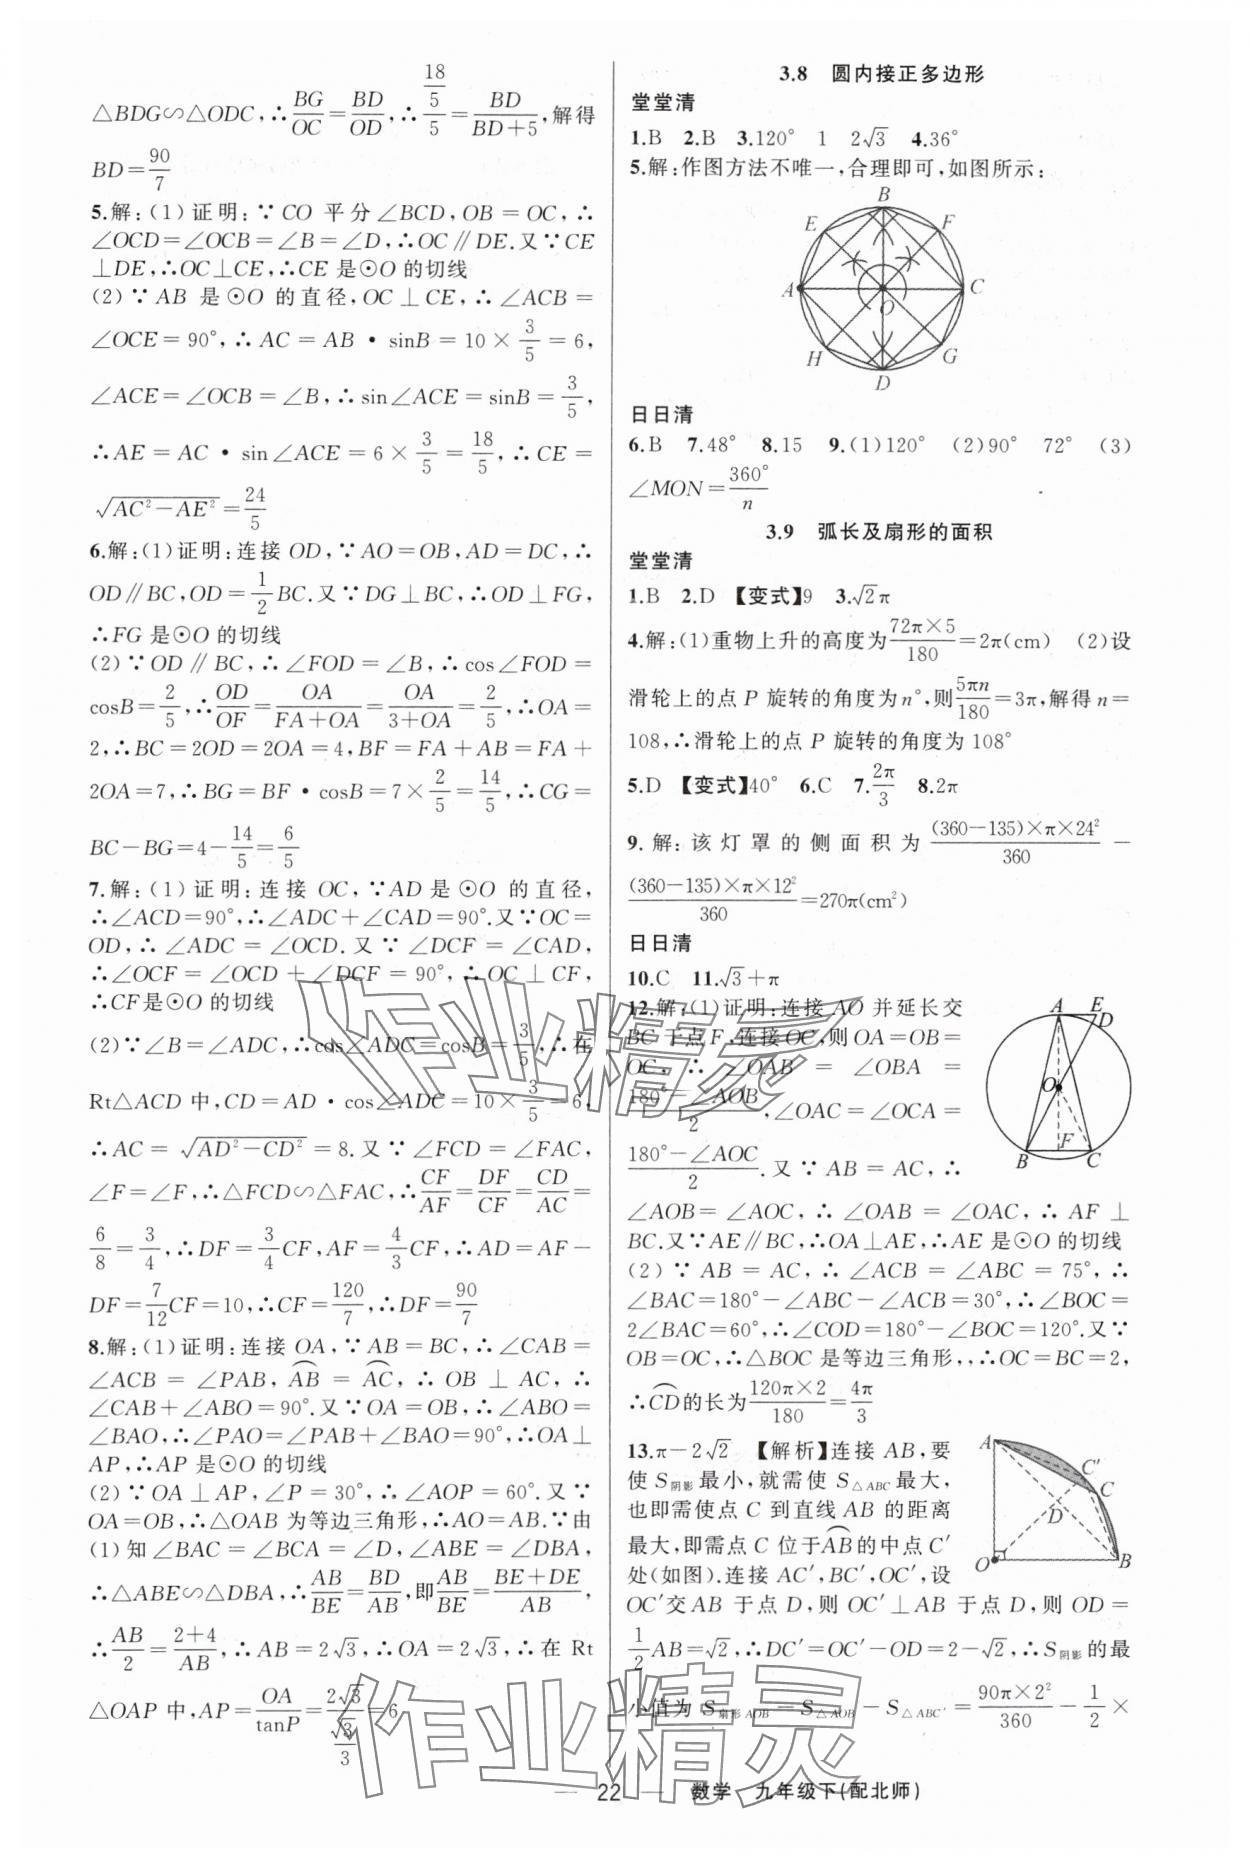 △BDG∽△ODC,∴BG/OC=BD/OD,∴(18/5)/5=BD/(BD+5),解得
BD=90/7
5.解:(1)证明:∵CO 平分∠BCD,OB=OC,∴
∠OCD=∠OCB=∠B=∠D,∴OC∥DE.又∵CE
⊥DE,∴OC⊥CE,∴CE 是⊙O 的切线
(2)∵AB 是⊙O 的直径,OC⊥CE,∴∠ACB=
∠OCE=90°,∴AC=AB·sinB=10×3/5=6,
∠ACE=∠OCB=∠B,∴sin∠ACE=sinB=3/5,
∴AE=AC·sin∠ACE=6×3/5=18/5,∴CE=
√(AC²-AE²)=24/5
6.解:(1)证明:连接 OD,∵AO=OB,AD=DC,∴
OD∥BC,OD=1/2BC.又∵DG⊥BC,∴OD⊥FG,
∴FG 是⊙O 的切线
(2)∵OD∥BC,∴∠FOD=∠B,∴cos∠FOD=
cosB=2/5,∴OD/OF=OA/(FA+OA)=OA/(3+OA)=2/5,∴OA=
2,∴BC=2OD=2OA=4,BF=FA+AB=FA+
2OA=7,∴BG=BF·cosB=7×2/5=14/5,∴CG=
BC-BG=4-14/5=6/5
7.解:(1)证明:连接 OC,∵AD 是⊙O 的直径,
∴∠ACD=90°,∴∠ADC+∠CAD=90°.又∵OC=
OD,∴∠ADC=∠OCD.又∵∠DCF=∠CAD,
∴∠OCF=∠OCD+∠DCF=90°,∴OC⊥CF,
∴CF是⊙O 的切线
(2)∵∠B=∠ADC,∴cos∠ADC=cosB=3/5,∴在
Rt△ACD 中,CD=AD·cos∠ADC=10×3/5=6,
∴AC=√(AD²-CD²)=8.又∵∠FCD=∠FAC,
∠F=∠F,∴△FCD∽△FAC,∴CF/AF=DF/CF=CD/AC=
6/8=3/4,∴DF=3/4CF,AF=4/3CF,∴AD=AF-
DF=7/12CF=10,∴CF=120/7,∴DF=90/7
8.解:(1)证明:连接 OA,∵AB=BC,∴∠CAB=
∠ACB=∠PAB,⌒AB=⌒AC,∴OB⊥AC,∴
∠CAB+∠ABO=90°.又∵OA=OB,∴∠ABO=
∠BAO,∴∠PAO=∠PAB+∠BAO=90°,∴OA⊥
AP,∴AP 是⊙O 的切线
(2)∵OA⊥AP,∠P=30°,∴∠AOP=60°.又∵
OA=OB,∴△OAB 为等边三角形,∴AO=AB.∵由
(1)知∠BAC=∠BCA=∠D,∠ABE=∠DBA,
∴△ABE∽△DBA,∴AB/BE=BD/AB,即AB/BE=(BE+DE)/AB,
∴AB/2=(2+4)/AB,∴AB=2√3,∴OA=2√3,∴在 Rt
△OAP 中,AP=OA/tanP=2√3/(√3/3)=6
3.8 圆内接正多边形
堂堂清
1.B 2.B 3.120° 1 2√3 4.36°
5.解:作图方法不唯一,合理即可,如图所示:
B
E F
A O C
H G
D
日日清
6.B 7.48° 8.15 9.(1)120° (2)90° 72° (3)
∠MON=360°/n
3.9 弧长及扇形的面积
堂堂清
1.B 2.D 【变式】9 3.√2π
4.解:(1)重物上升的高度为72π×5/180=2π(cm) (2)设
滑轮上的点 P 旋转的角度为n°,则5πn/180=3π,解得n=
108,∴滑轮上的点 P 旋转的角度为108°
5.D 【变式】40° 6.C 7.2π/3 8.2π
9.解:该灯罩的侧面积为(360-135)×π×24²/360-
(360-135)×π×12²/360=270π(cm²)
日日清
10.C 11.√3+π
12.解:(1)证明:连接 AO 并延长交
BC 于点F,连接OC,则OA=OB=
OC,∴∠OAB=∠OBA=
(180°-∠AOB)/2,∠OAC=∠OCA=
(180°-∠AOC)/2.又∵AB=AC,∴
A E
D
O
F
B C
∠AOB=∠AOC,∴∠OAB=∠OAC,∴AF⊥
BC.又∵AE∥BC,∴OA⊥AE,∴AE 是⊙O 的切线
(2)∵AB=AC,∴∠ACB=∠ABC=75°,∴
∠BAC=180°-∠ABC-∠ACB=30°,∴∠BOC=
2∠BAC=60°,∴∠COD=180°-∠BOC=120°.又∵
OB=OC,∴△BOC 是等边三角形,,∴OC=BC=2,
∴⌒CD的长为120π×2/180=4π/3
13.π-2√2 【解析】连接 AB,要
使 S阴影最小,就需使 S△ABC最大,
也即需使点 C 到直线 AB 的距离
最大,即需点 C 位于⌒AB的中点 C′
处(如图).连接 AC′,BC′,OC′,设
A
C′
C
D
O B
OC′交 AB 于点 D,则 OC′⊥AB 于点 D,则 OD=
1/2AB=√2,∴DC′=OC′-OD=2-√2,∴S阴影的最
小值为 S扇形AOB-S△AOB-S△ABC′=90π×2²/360-1/2×
作业精灵
作业精灵
22 数学 九年级下(配北师)